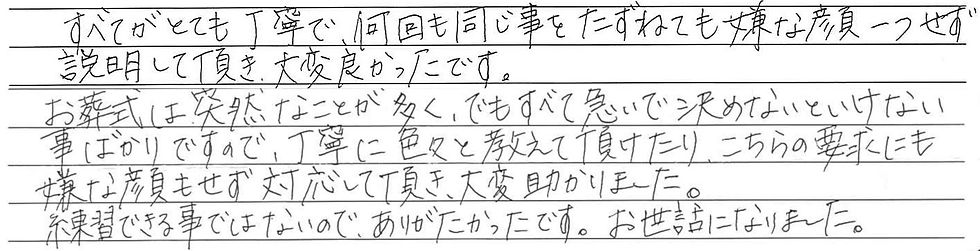 すべてがとても丁寧で、何回も同じ事をたずねても嫌な顔一つせず
説明して頂き、大変良かったです。
お葬式は突然なことが多く、でもすべて急いで決めないといけない
事ばかりですので、丁寧に色々と教えて頂けたり、こちらの要求にも
嫌な顔もせず対応して頂き、大変助かりました。
練習できる事ではないので、ありがたかったです。お世話になりました。